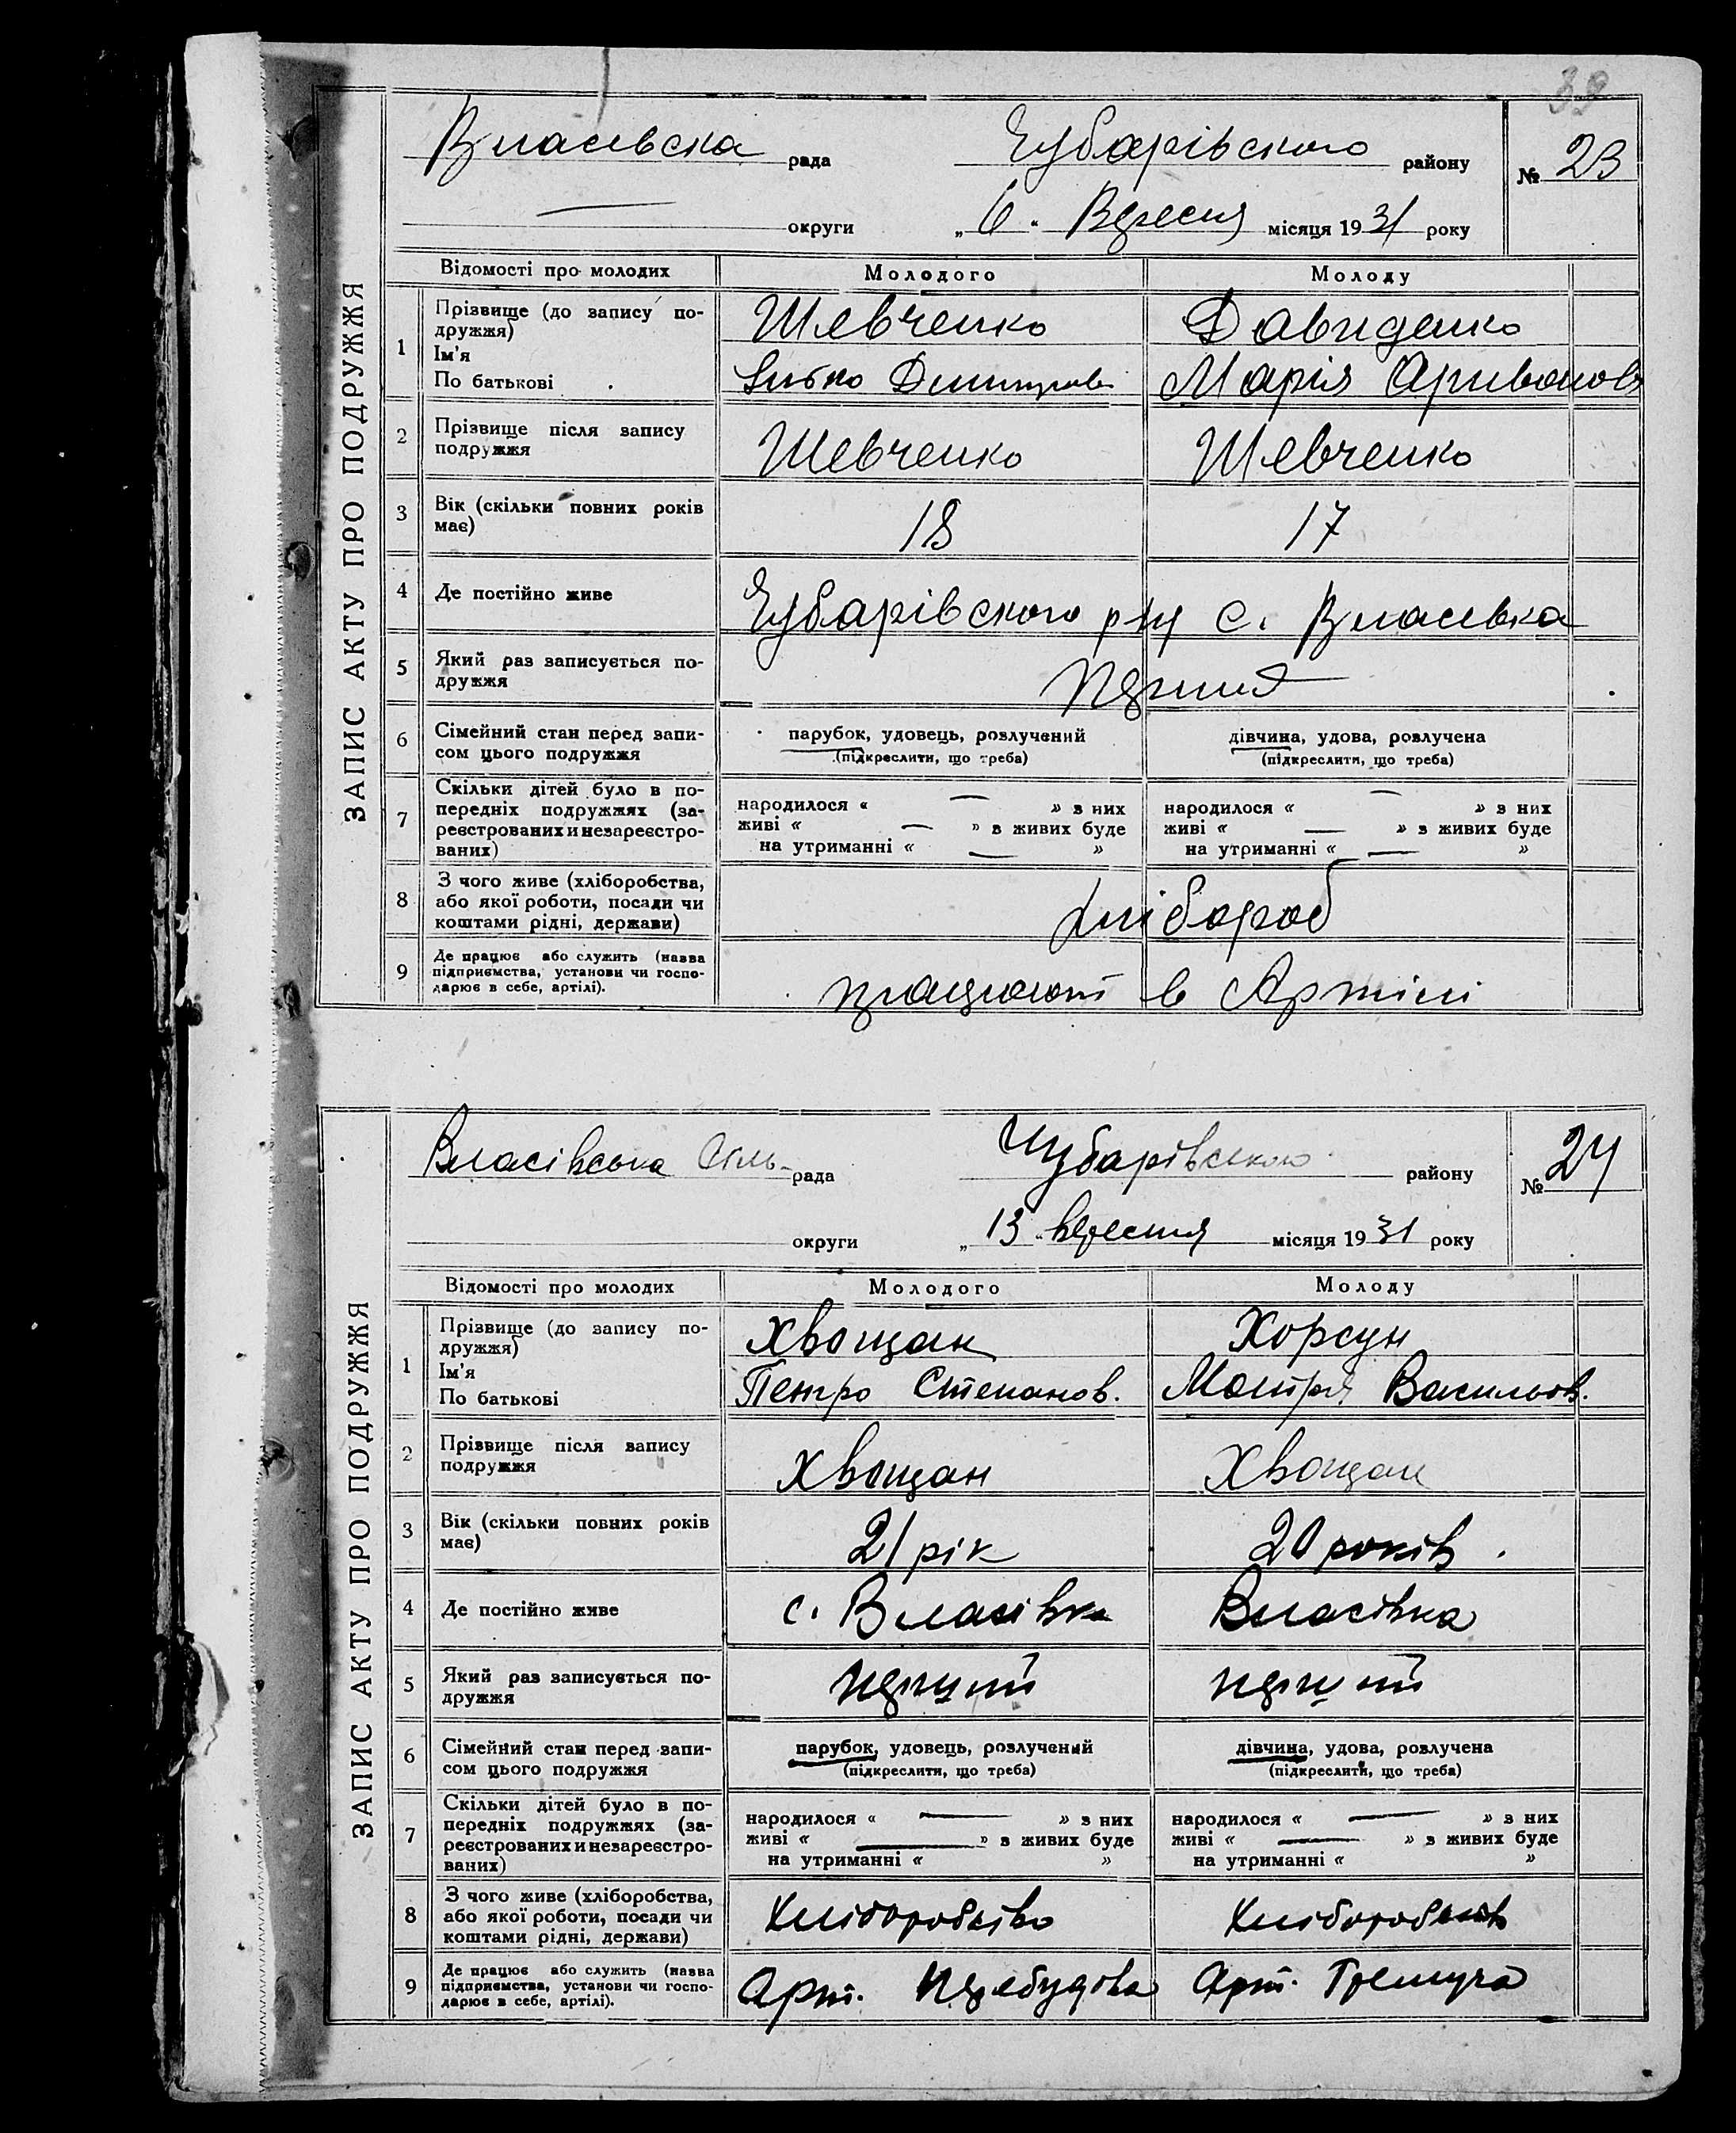 39
Власівска рада Чубарівського району № 23
округи „ 6 “ Вересня місяця 1931 року
ЗАПИС АКТУ ПРО ПОДРУЖЖЯ
Відомості про молодих Молодого Молоду
1 Прізвище (до запису по-
дружжя) Шевченко Давиденко
Ім'я
По батькові Марія
2 Прізвище після запису
подружжя Шевченко Шевченко
3 Вік (скільки повних років
має) 18 17
4 Де постійно живе Чубарівського р-ну с. Власівка
5 Який раз записується по-
дружжя Перший
6 Сімейний стан перед запи-
сом цього подружжя парубок, удовець, розлучений дівчина, удова, розлучена
(підкреслити, що треба) (підкреслити, що треба)
7 Скільки дітей було в по-
передніх подружжях (за-
реєстрованих и незареєстро-
ваних)
народилося « — » з них народилося « — » з них
живі « — » з живих буде живі « — » з живих буде
на утриманні « — » на утриманні « — »
8 З чого живе (хліборобства,
або якої роботи, посади чи
коштами рідні, держави) хлібороб
9 Де працює або служить (назва
підприємства, установи чи госпо-
дарює в себе, артілі). працюют в Артілі
Власівська Сіль- рада Чубарівського району № 24
округи „ 13 “ вересня місяця 1931 року
ЗАПИС АКТУ ПРО ПОДРУЖЖЯ
Відомості про молодих Молодого Молоду
1 Прізвище (до запису по-
дружжя) Хвощан Хорсун
Ім'я
По батькові Петро Степанов. Мотря Васильов.
2 Прізвище після запису
подружжя Хвощан Хвощан
3 Вік (скільки повних років
має) 21 рік 20 років
4 Де постійно живе с. Власівка Власівка
5 Який раз записується по-
дружжя перший перший
6 Сімейний стан перед запи-
сом цього подружжя парубок, удовець, розлучений дівчина, удова, розлучена
(підкреслити, що треба) (підкреслити, що треба)
7 Скільки дітей було в по-
передніх подружжях (за-
реєстрованих и незареєстро-
ваних)
народилося « — » з них народилося « — » з них
живі « — » з живих буде живі « — » з живих буде
на утриманні « » на утриманні « »
8 З чого живе (хліборобства,
або якої роботи, посади чи
коштами рідні, держави)
9 Де працює або служить (назва
підприємства, установи чи госпо-
дарює в себе, артілі). Арт. Перебудова Арт. Гремуча